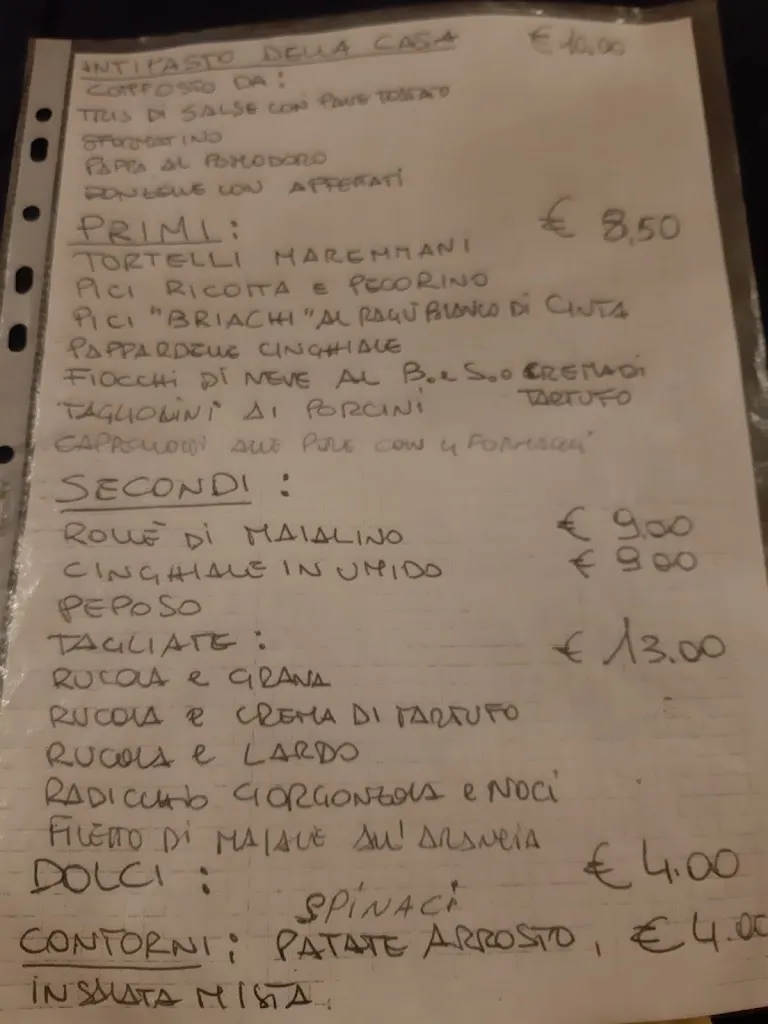 ANTIPASTO DELLA CASA € 10,00
COMPOSTO DA:
TRIS DI SALSE CON PANE TOSTATO
SFORMATINO
PAPPA AL POMODORO
CON AFFETTATI
PRIMI: € 8,50
TORTELLI MAREMMANI
PICI RICOTTA E PECORINO
PICI "BRIACHI" AL RAGÙ BIANCO DI CINTA
PAPPARDELLE CINGHIALE
FIOCCHI DI NEVE AL B. e S. o CREMA DI
TARTUFO
TAGLIOLINI AI PORCINI
CAPPELLACCI ALLE PERE CON 4 FORMAGGI
SECONDI:
ROLLÈ DI MAIALINO € 9.00
CINGHIALE IN UMIDO € 9.00
PEPOSO
TAGLIATE: € 13.00
RUCOLA e GRANA
RUCOLA e CREMA DI TARTUFO
RUCOLA e LARDO
RADICCHIO GORGONZOLA e NOCI
FILETTO DI MAIALE ALL'ARANCIA
DOLCI: € 4.00
SPINACI
CONTORNI: PATATE ARROSTO, € 4.00
INSALATA MISTA